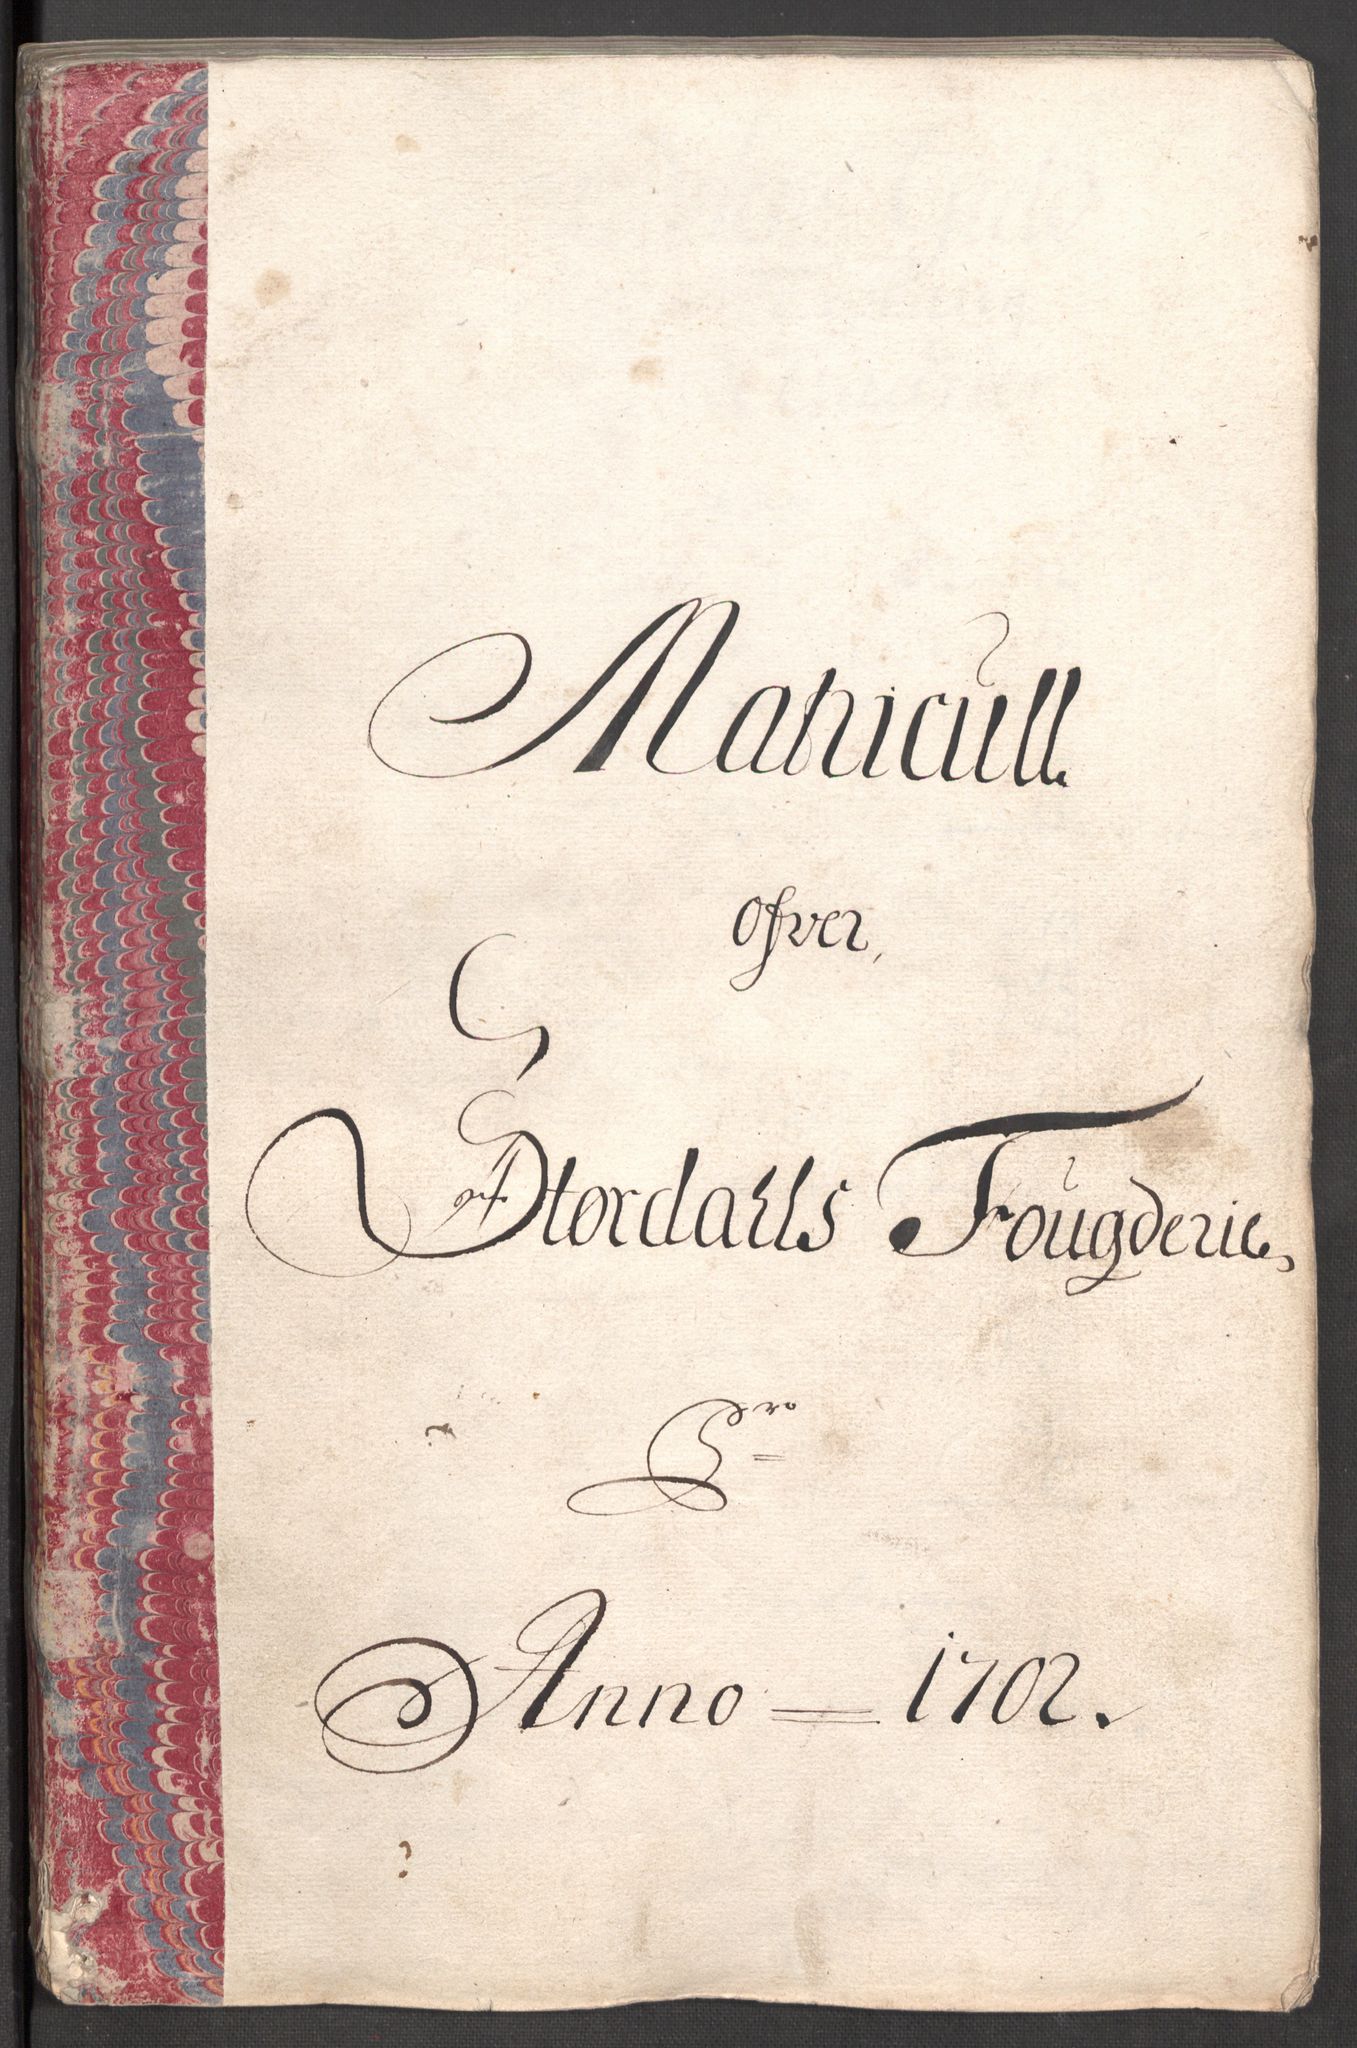 Matricull
ofver
Stordalls Fougderie,
Pro
Anno = 1702.